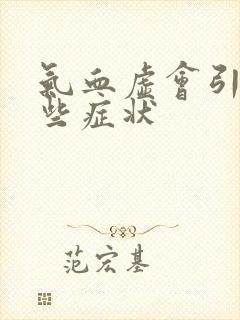 氣血虛會引
些症狀
范宏基